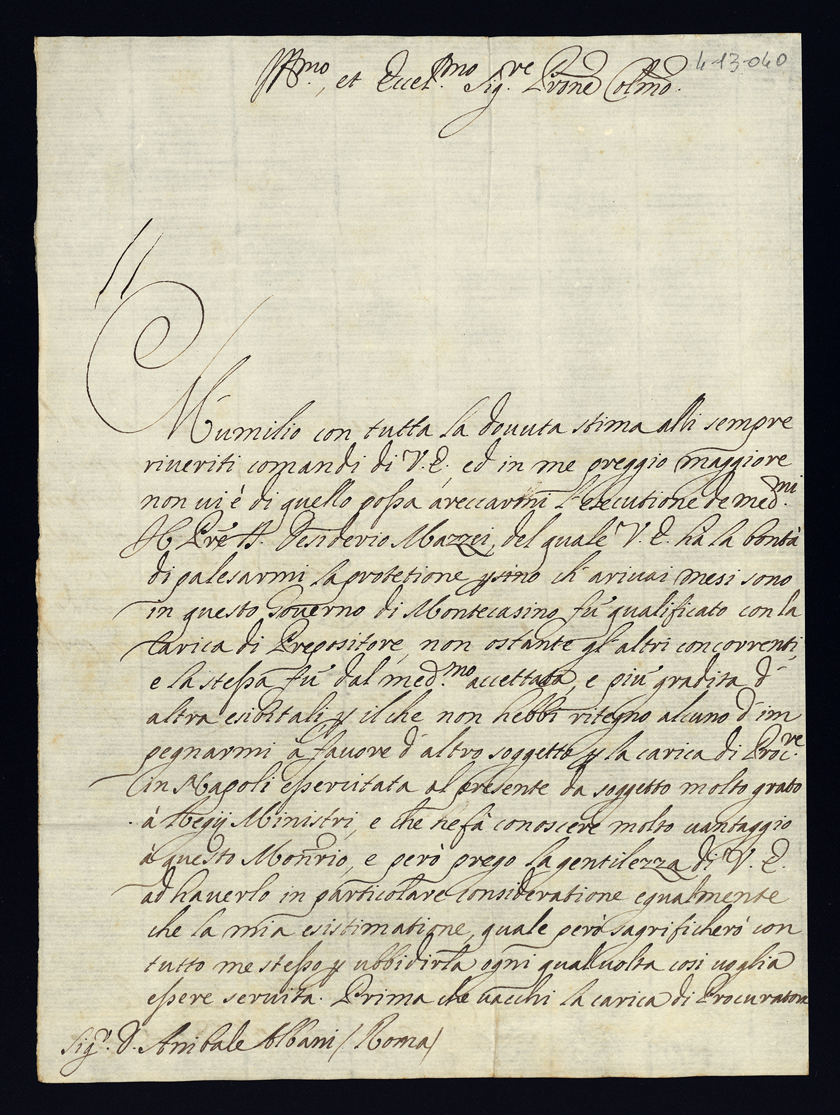 Ill.mo, et Eccel.mo Sig.re P'rone Colmo. 4-13-040
M'umilio con tutta la douuta stima alli sempre
riueriti comandi di V. E. ed in me preggio maggiore
non ui è di quello possa areccarmi l'esecutione de med.mi
Il P're D. Desiderio Mazzei, del quale V. E. hà la bontà
di palesarmi la protetione, sino ch' ariuai mesi sono
in questo Gouerno di Montecasino fù qualificato con la
Carica di Prepositore, non ostante gl' altri concorrenti,
e la stessa fù dal med.mo accettata, e più gradita d'
altra esibitali, il che non hebbi ritegno alcuno d' im
pegnarmi à fauore d' altro soggetto la carica di Proc.re
in Napoli essercitata al presente da soggetto molto grato
à Regij Ministri, e che ne fà conoscere molto uantaggio
à questo Mon'rio, e però prego la gentilezza di V. E.
ad hauerlo in particolare consideratione egualmente
che la mia esistimatione, quale però sagrificherò con
tutto me stesso ubbidirla ogni qualuolta cosi uoglia
essere seruita. Prima che uacchi la carica di Procuratore
Sig.r D. Anibale Albani / Roma /